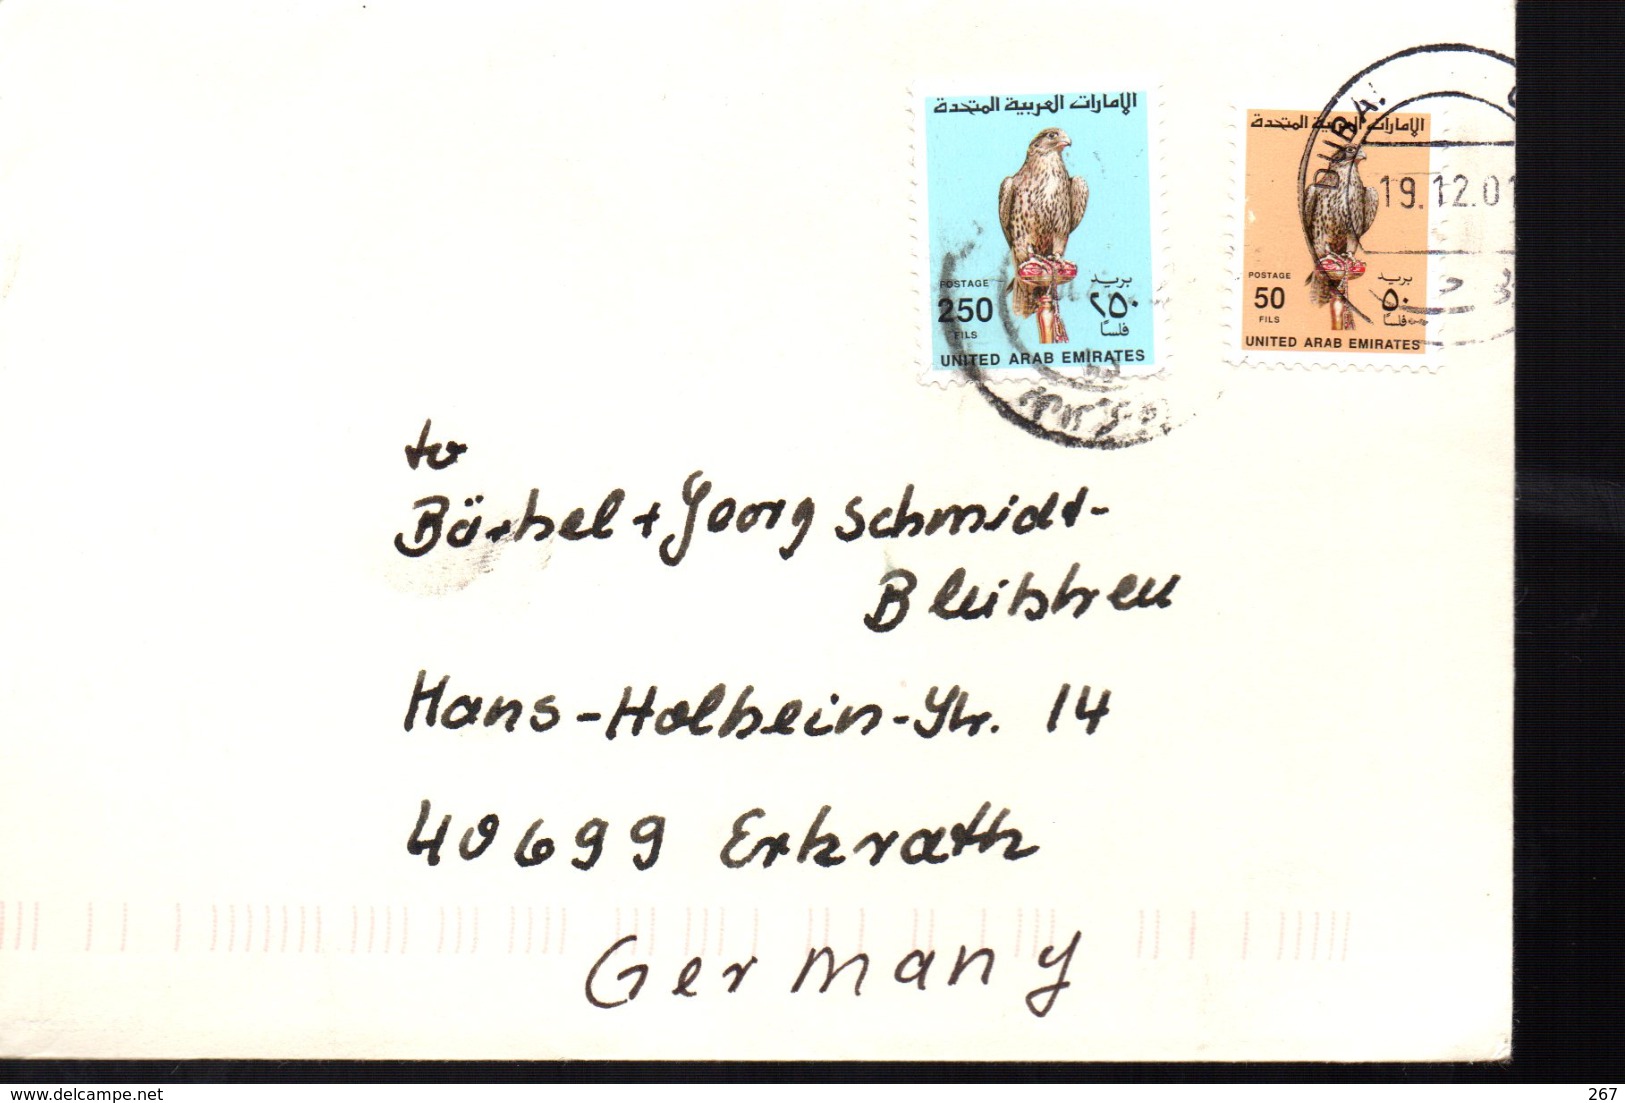 الإمارات العربية المتحدة
POSTAGE بريد
250 ٢٥٠
FILS فلسًا
UNITED ARAB EMIRATES
الإمارات العربية المتحدة
POSTAGE بريد
50 ٥٠
FILS فلسًا
UNITED ARAB EMIRATES
DUBAI
19.12.01
to
Bärbel + Georg Schmidt-
Bleibtreu
Hans-Holbein-Str. 14
40699 Erkrath
Germany
www.delcampe.net
jf85
267